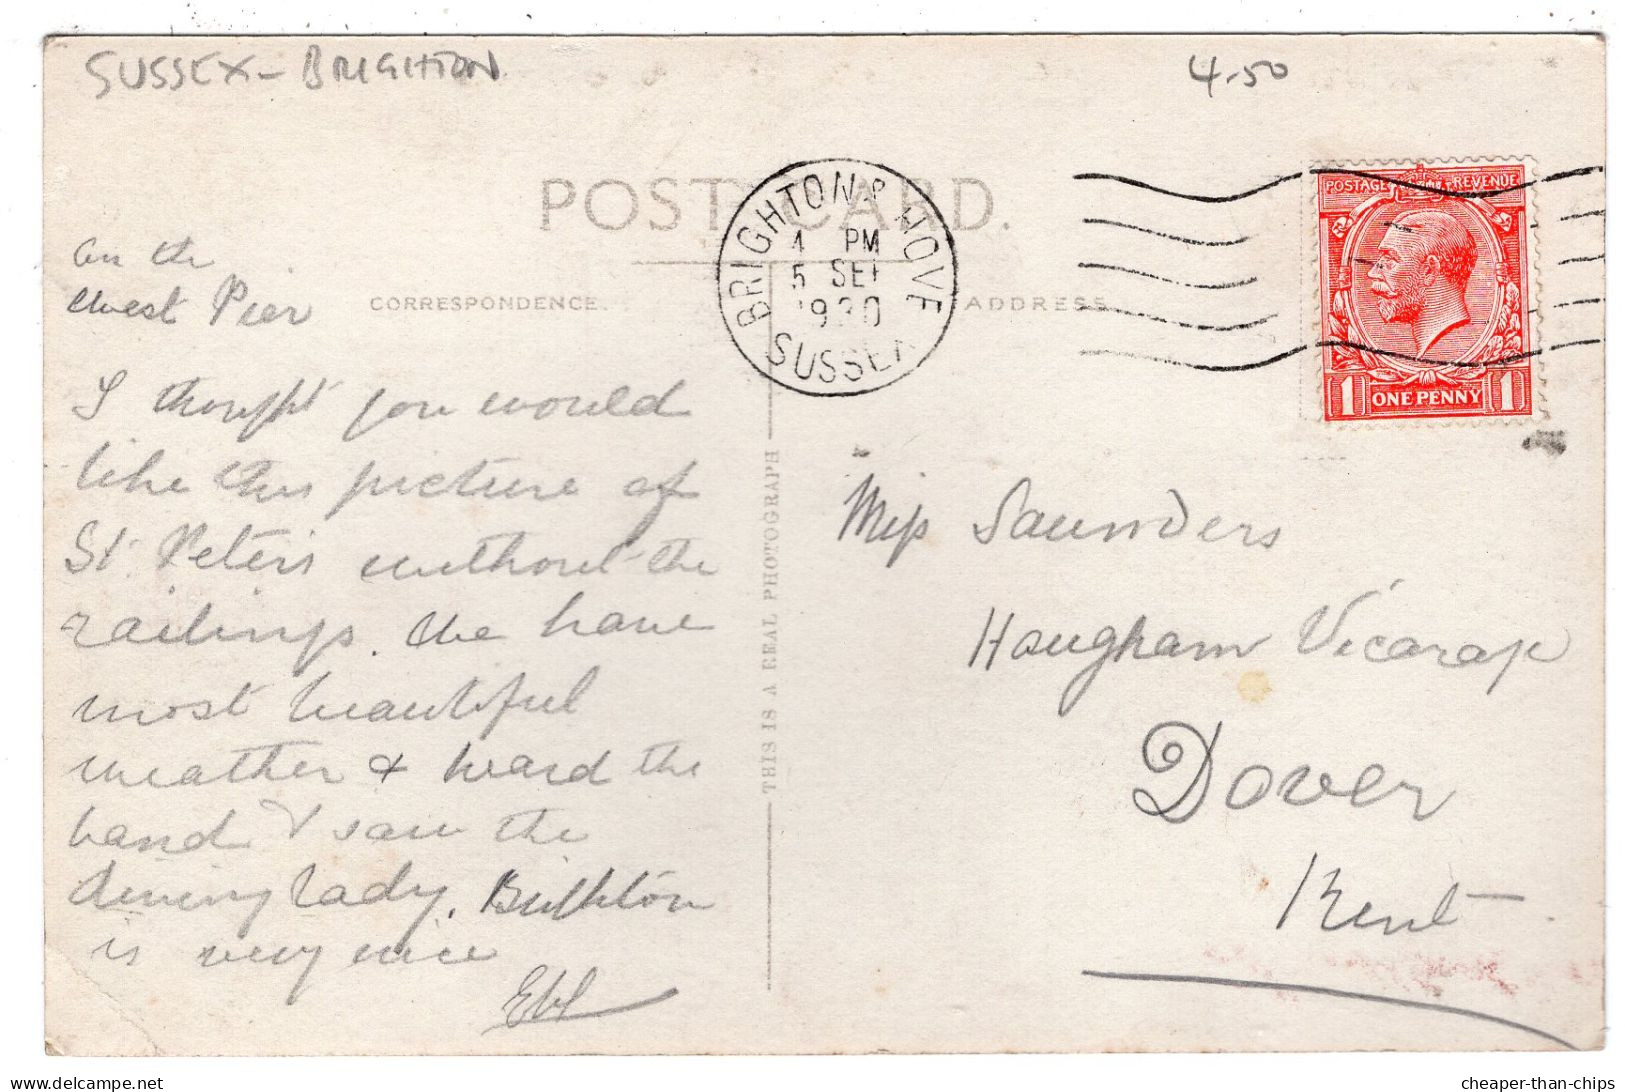 SUSSEX - BRIGHTON
4-50
POST CARD.
BRIGHTON & HOVE
PM
5 SEP
1930
SUSSEX
POSTAGE REVENUE
1 ONE PENNY 1
CORRESPONDENCE.
ADDRESS
THIS IS A REAL PHOTOGRAPH
on the
West Pier
I thought you would
like this picture of
St. Peters without the
railings. We have
most beautiful
weather & heard the
band & saw the
diving lady. Brighton
is very nice
Miss Saunders
Hougham Vicarage
Dover
Kent
cheaper-than-chips
delcampe.net
cheaper-than-chips